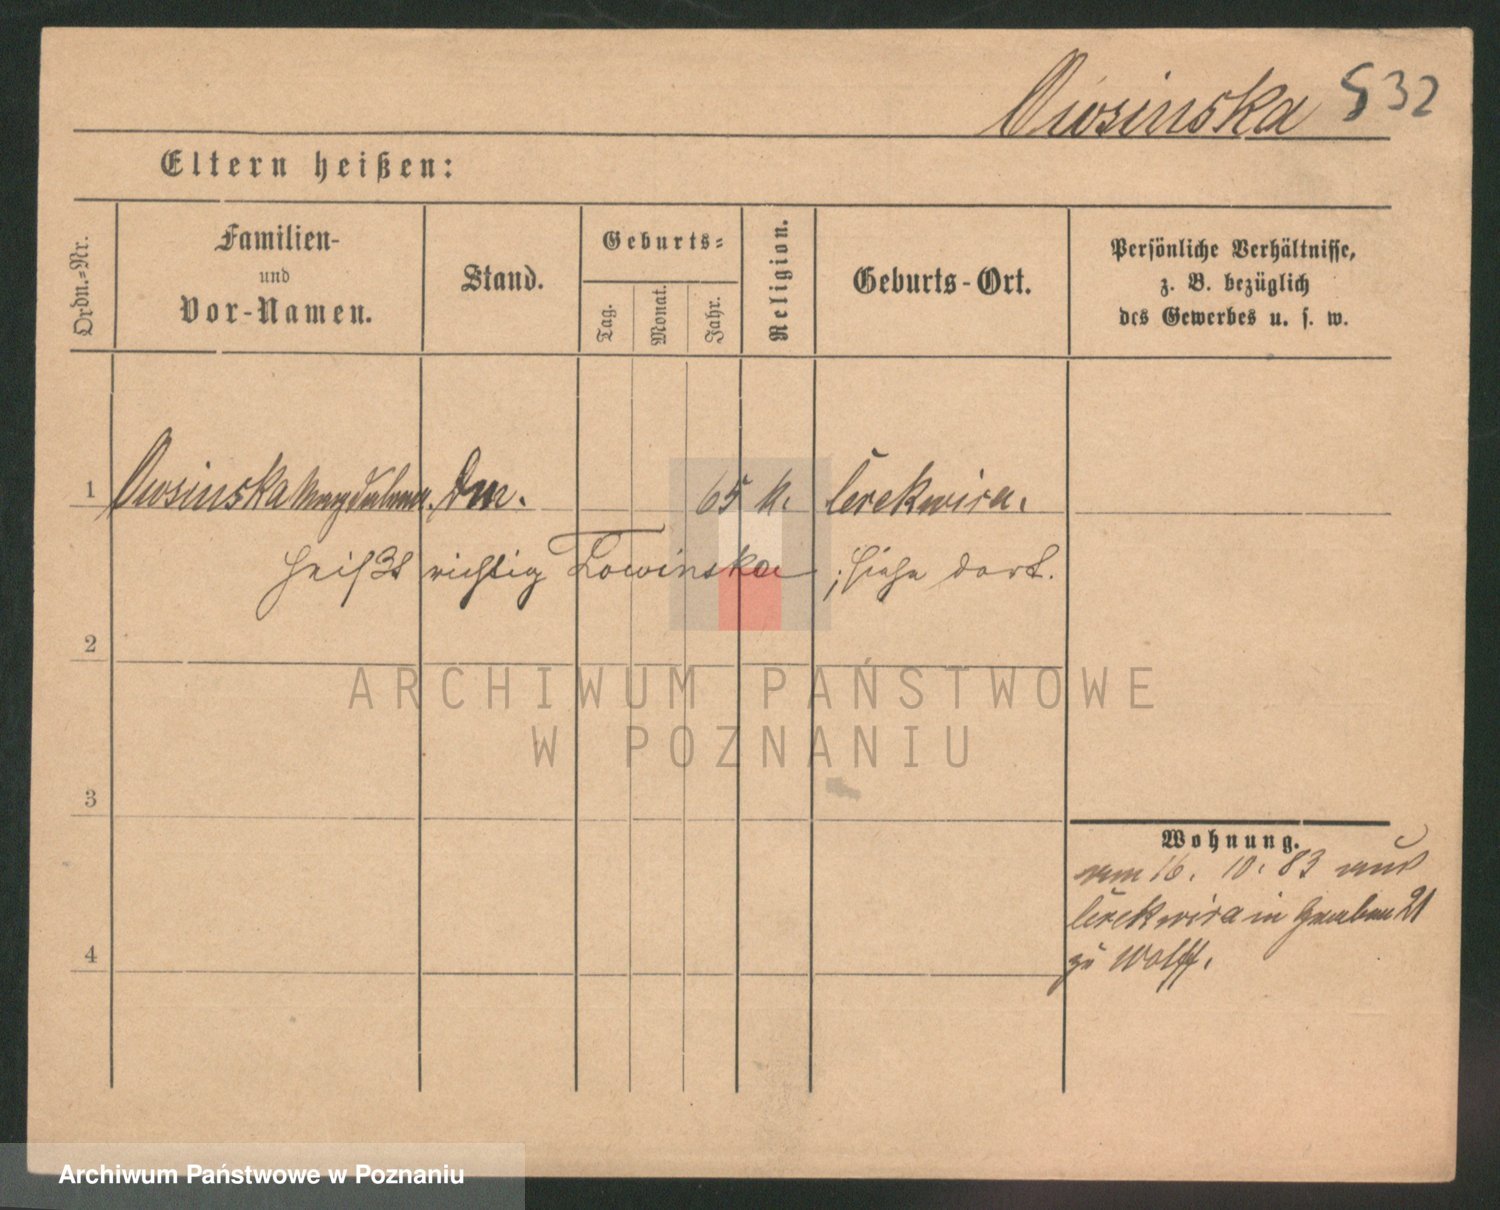 Owsinska 532
Eltern heißen:
Ordn.-Nr.
Familien-
und
Vor-Namen.
Stand.
Geburts-
Tag.
Monat.
Jahr.
Religion.
Geburts-Ort.
Persönliche Verhältnisse,
z. B. bezüglich
des Gewerbes u. s. w.
1 Owsinska Magdalena. Dm. 65 k. Cerekwica.
heißt richtig Lowinska ; siehe dort.
2
ARCHIWUM PAŃSTWOWE
W POZNANIU
3
Wohnung.
vom 16. 10. 83 aus
Cerekwica in Graben 21
zu Wolff.
4
Archiwum Państwowe w Poznaniu